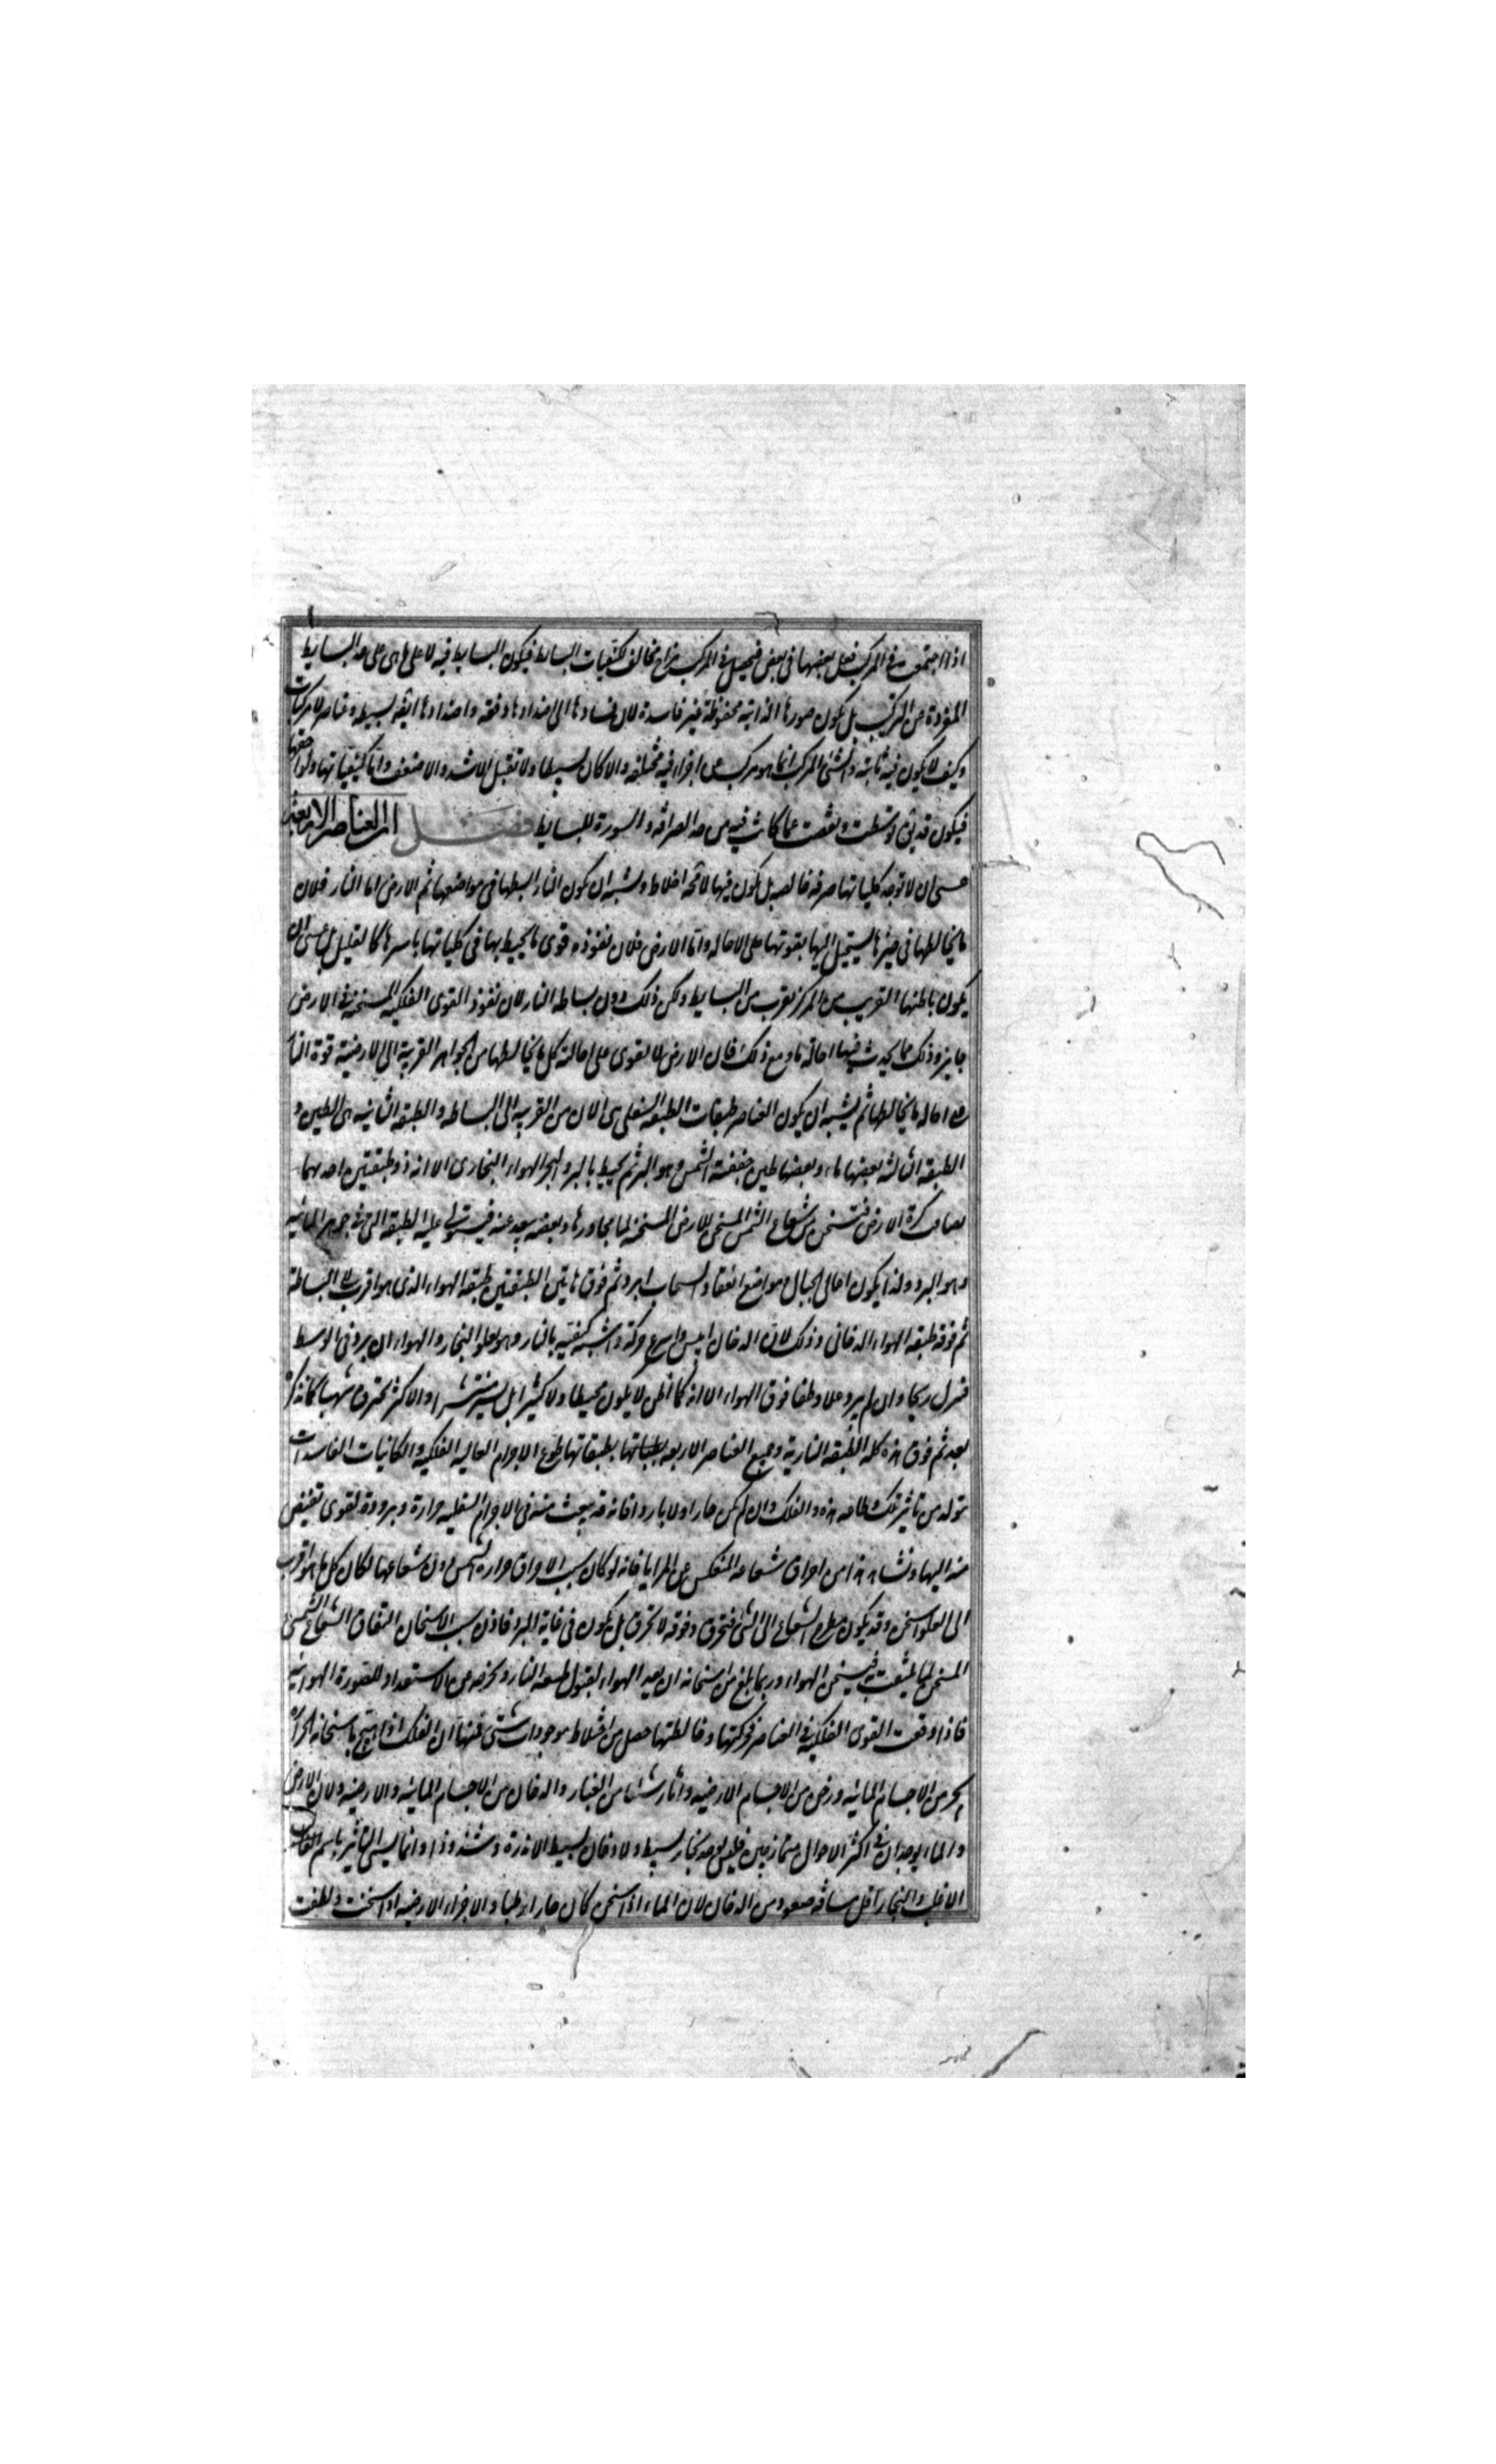 اذا اجتمعت في المركب فعل بعضها في بعض فيحصل في المركب مزاج مخالف لكيفيات البسائط فيكون البسايط فيه لا على ما هي على حد البسايط
المفردة عن التركيب بل يكون صورها الذاتية محفوظة غير فاسدة لان فسادها الى اضدادها دفعة واضدادها ايضا بسيطه وعناصر لا مركبات
وكيف لا يكون فيه ثابتة والشئ المركب انما هو مركب عن اجزاء فيه مختلفه والا كان بسيطا ولا تقبل الاشد والاضعف واما كيفياتها ولواحقها
فيكون قد توسطت ونقصت عما كانت فيه من حد الصرافة والسورة للبسايط فصل ان العناصر الاربعة
عسى ان لا توجد كلياتها صرفه خالصه بل يكون فيها لا محة اخلاط ويشبه ان يكون النار ابسطها في مواضعها ثم الارض اما النار فلان
ما يخالطها في حيزها يستحيل اليها بقوتها على الاحاله واما الارض فلان نفوذ قوى ما يحيط بها في كلياتها باسرها كالقليل بل عسى ان
يكون باطنها القريب من المركز يقرب من البسايط ولكن ذلك دون بساطه النار لان نفوذ القوى الفلكيه المسخنه في الارض
جايز وذلك مما يحدث فيها احالة ما ومع ذلك فان الارض لا تقوى على احالة كل ما يخالطها من الجواهر الغريبة الى الارضية قوة النار
على احاله ما يخالطها ثم يشبه ان يكون العناصر طبقات الطبقه السفلى هى الارض القريبه الى البساطه والطبقه الثانيه هى الطين و
الطبقه الثالثه بعضها ماء وبعضها طين جففته الشمس وهو البر ثم يحيط بالبر والبحر الهواء البخارى الا انه ذو طبقتين احدهما
يصاقب كرة الارض فتسخن من شعاع الشمس المسخن للارض المسخنه لما يجاورها وبعضه يبعد عنه فيستولى عليه الطبيعه التى في جوهر المائيه
وهو البرد ولذا يكون اعالى الجبال ومواضع انعقاد السحاب ابرد ثم فوق هاتين الطبقتين طبقه الهواء الذى هو اقرب الى البساطة
ثم فوقه طبقه الهواء الدخانى وذلك لان الدخان ايبس واسرع حركة واشبه كيفية بالنار وهو يعلو البخار والهواء ان برد في الوسط
فنزل ريحا وان لم يبرد علا وطفا فوق الهواء الا انه كما اظن لا يكون محيطا ولا كثيرا بل يسير منتشر او الاكثر يحترق شهبا كما نذكر
بعد ثم فوق هذه كله الطبقه النارية وجميع العناصر الاربعه بطبقاتها طوع الاجرام العاليه الفلكيه والكائنات الفاسدات
تتولد من تاثير تلك وطاعه هذه والفلك وان لم يكن حارا ولا باردا فانه قد ينبعث منه في الاجرام السفليه حرارة وبرودة بقوى تفيض
منه اليها ونشاهد هذا من احراق شعاعه المنعكس عن المرايا فانه لو كان سبب الاحراق حرارة الشمس دون شعاعها لكان كل ما هو اقرب
الى العلو اسخن وقد يكون مطرح الشعاع الى الشئ فتحرق وفوقه لا تحرق بل يكون في غاية البرد فاذن سبب الاسخان التفاف الشعاع الشمسى
المسخن لما يلتف به فيسخن الهواء وربما بلغ من اسخانه ان يعد الهواء لقبول طبيعه النار ويخرجه عن الاستعداد للصورة الهوائيه
فاذا وقعت القوى الفلكيه في العناصر فحركتها وخالطتها حصل من اختلاط موجودات شتى فمنها ان الفلك اذا هيج باسخانه الحرارة
بخر من الاجسام المائيه ودخن من الاجسام الارضيه واثار شيئا من الغبار والدخان من الاجسام المائيه والارضيه ولان الارض
والماء يوجدان في اكثر الاحوال متمازجين فليس يوجد بخار بسيط ولا دخان بسيط الا ندرة وشذوذا وانما يسمى التاثير باسم الغالب
الاغلب والبخار اقل مسافه صعود من الدخان لان الماء اذا سخن كان حارا رطبا والاجزاء الارضيه اذا سخنت ولطفت